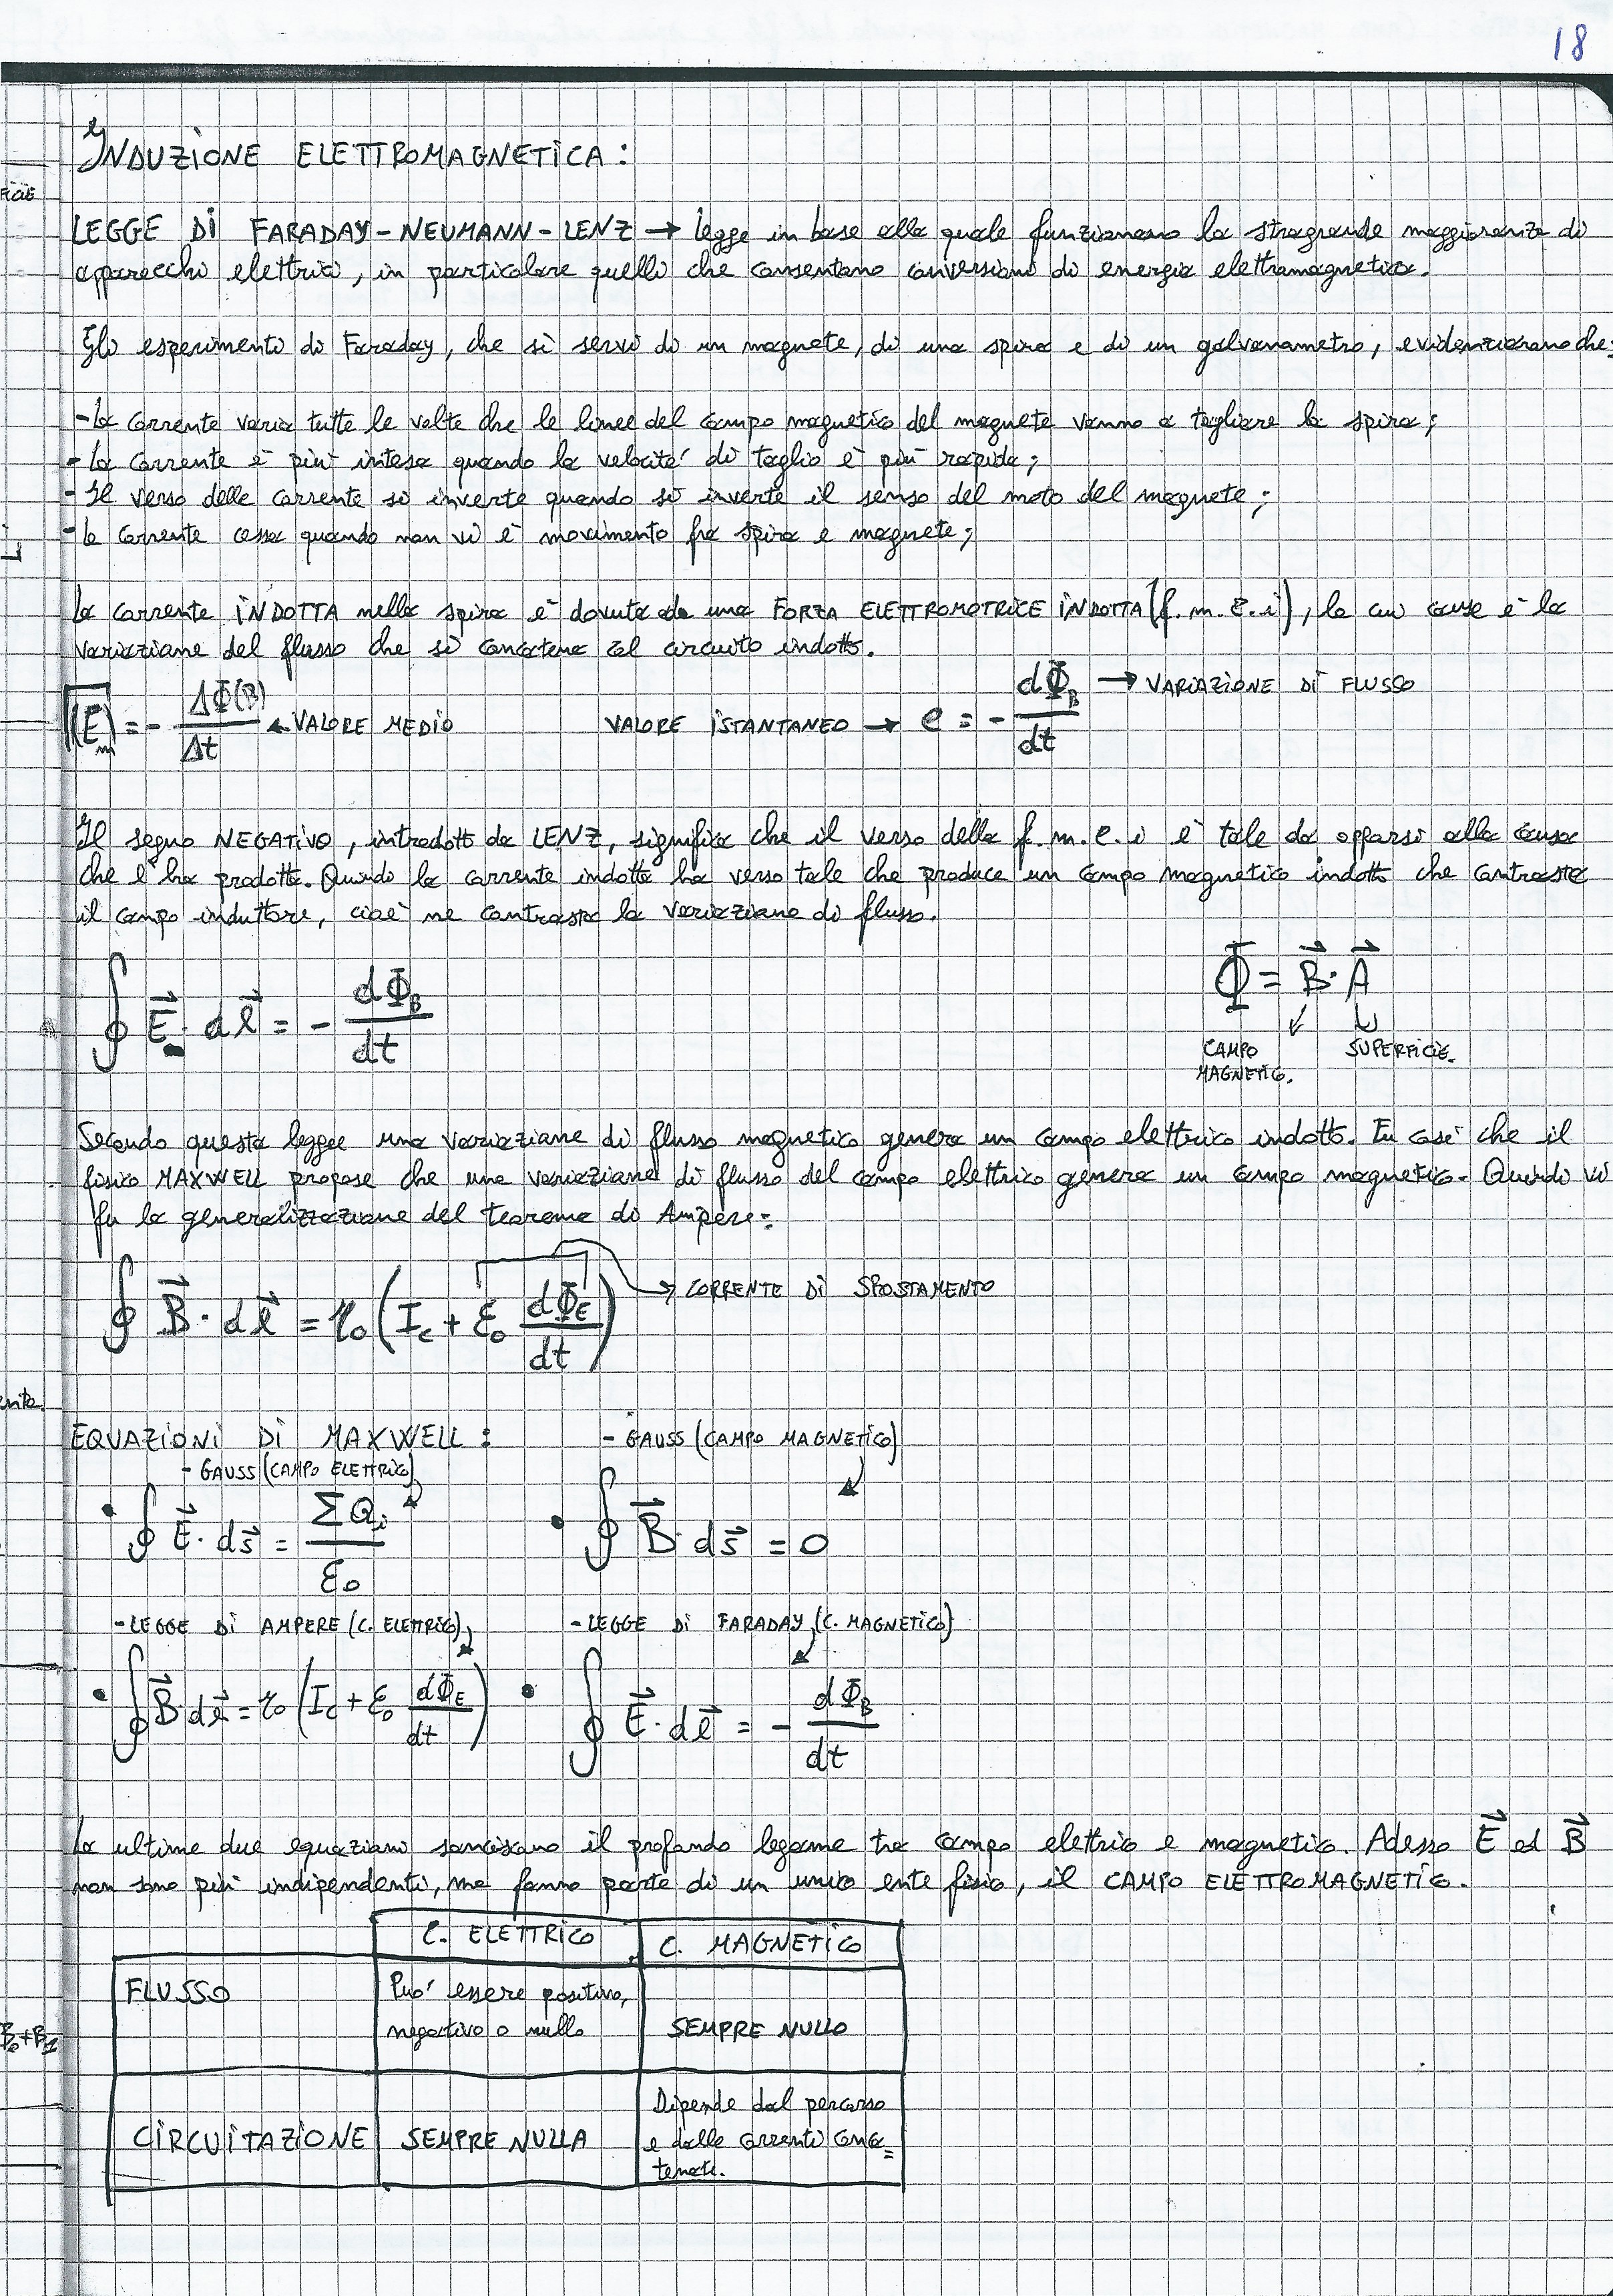 18
INDUZIONE ELETTROMAGNETICA:
FICIE
LEGGE DI FARADAY-NEUMANN-LENZ → legge in base alla quale funzionano la stragrande maggioranza di
apparecchi elettrici, in particolare quelli che consentano conversioni di energia elettromagnetica.
Gli esperimenti di Faraday, che si servì di un magnete, di una spira e di un galvanometro, evidenziarono che:
- La corrente varia tutte le volte che le linee del campo magnetico del magnete vanno a tagliare la spira;
- La corrente è più intesa quando la velocità di taglio è più rapida;
- Il verso delle corrente si inverte quando si inverte il senso del moto del magnete;
- la corrente cessa quando non vi è movimento fra spira e magnete;
La corrente INDOTTA nella spira è dovuta da una FORZA ELETTROMOTRICE INDOTTA (f.m.e.i), la cui cause è la
variazione del flusso che si concatena col circuito indotto.
|E_m| = - ΔΦ(B)/Δt ← VALORE MEDIO VALORE ISTANTANEO → e = - dΦ_B/dt → VARIAZIONE DI FLUSSO
Il segno NEGATIVO, introdotto da LENZ, significa che il verso della f.m.e.i è tale da opporsi alla causa
che l'ha prodotta. Quindi la corrente indotta ha verso tale che produce un campo magnetico indotto che contrasta
il campo induttore, cioè ne contrasta la variazione di flusso.
∮ E⃗ · dl⃗ = - dΦ_B/dt Φ = B⃗ · A⃗
CAMPO MAGNETICO. SUPERFICIE.
Secondo questa legge una variazione di flusso magnetico genera un campo elettrico indotto. Fu così che il
fisico MAXWELL propose che una variazione di flusso del campo elettrico genera un campo magnetico. Quindi vi
fu la generalizzazione del teorema di Ampère:
∮ B⃗ · dl⃗ = μ₀ (I_c + ε₀ dΦ_E/dt) → CORRENTE DI SPOSTAMENTO
ente.
EQUAZIONI DI MAXWELL: - GAUSS (CAMPO MAGNETICO)
- GAUSS (CAMPO ELETTRICO)
• ∮ E⃗ · ds⃗ = ΣQ_i/ε₀ • ∮ B⃗ · ds⃗ = 0
- LEGGE DI AMPERE (C. ELETTRICO) - LEGGE DI FARADAY (C. MAGNETICO)
• ∮ B⃗ · dl⃗ = μ₀ (I_c + ε₀ dΦ_E/dt) • ∮ E⃗ · dl⃗ = - dΦ_B/dt
Le ultime due equazioni sanciscono il profondo legame tra campo elettrico e magnetico. Adesso E⃗ ed B⃗
non sono più indipendenti, ma fanno parte di un unico ente fisico, il CAMPO ELETTROMAGNETICO.
C. ELETTRICO C. MAGNETICO
FLUSSO Può essere positivo,
negativo o nullo SEMPRE NULLO
CIRCUITAZIONE SEMPRE NULLA Dipende dal percorso
e dalle correnti conca=
tenate.